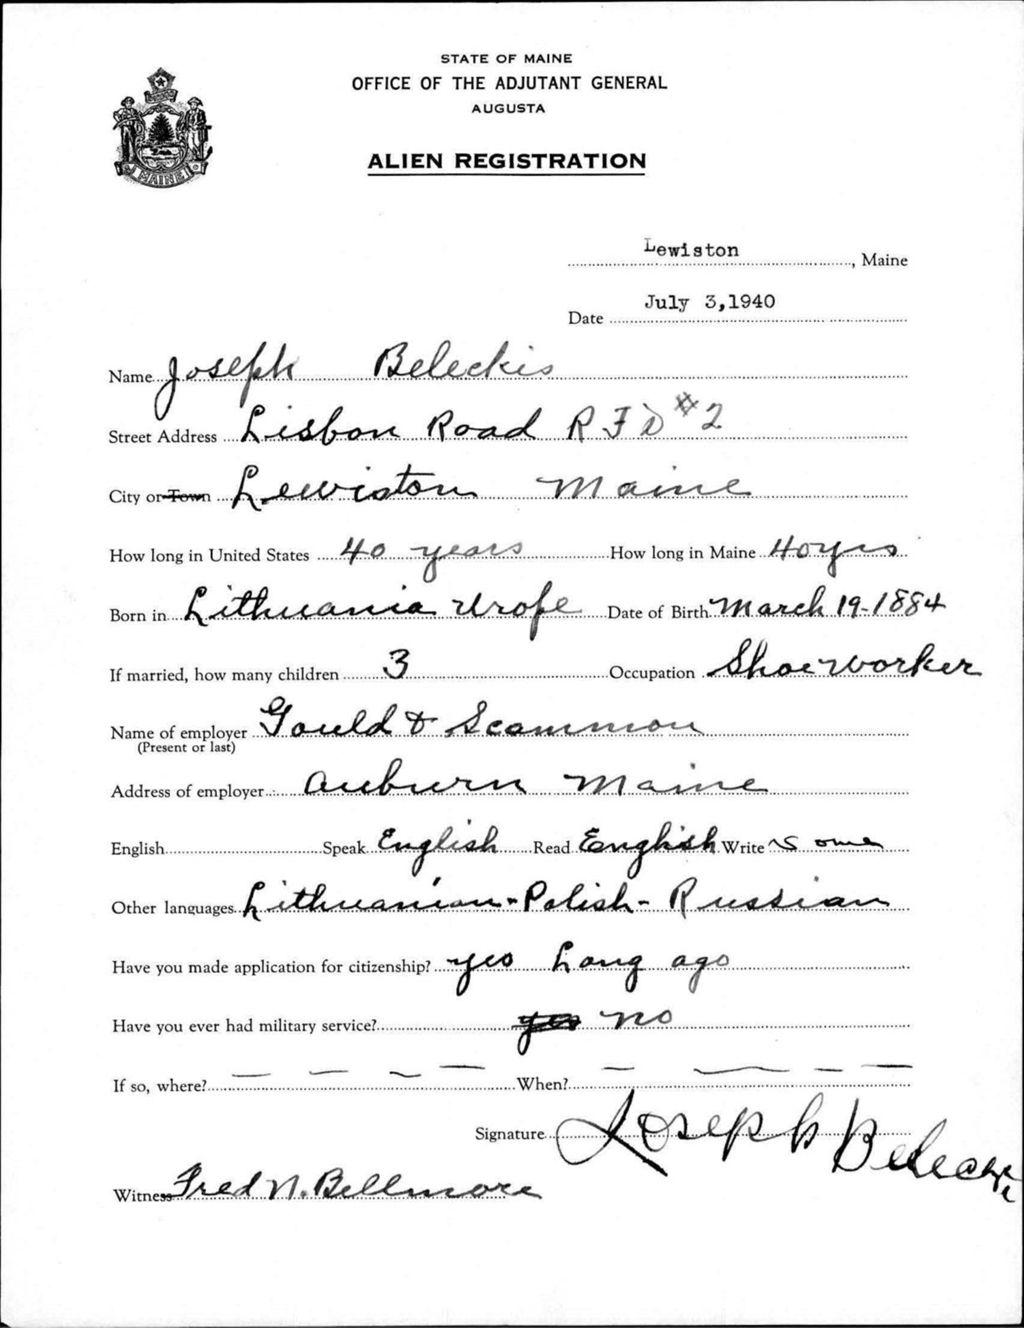 STATE OF MAINE
OFFICE OF THE ADJUTANT GENERAL
AUGUSTA
ALIEN REGISTRATION
MAINE
Lewiston, Maine
Date July 3,1940
Name Joseph Beleckis
Street Address Lisbon Road R F D #2
City or Town Lewiston Maine
How long in United States 40 years How long in Maine 40 yrs
Born in Lithuania Urope Date of Birth March 19-1884
If married, how many children 3 Occupation Shoe worker
Name of employer Gould & Scammon
(Present or last)
Address of employer Auburn Maine
English Speak English Read English Write Some
Other languages Lithuanian-Polish-Russian
Have you made application for citizenship? yes Long ago
Have you ever had military service? yes no
If so, where? — — — — When? — — — —
Signature Joseph Beleckis
Witness Fred N. Bellmore